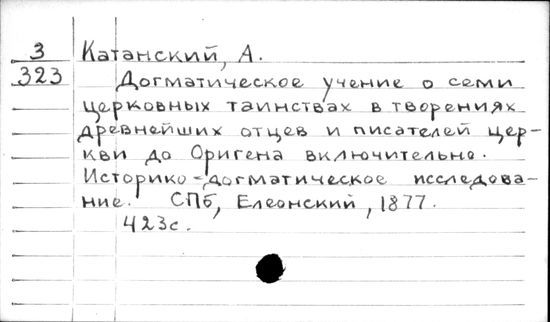 3 Катанский, А.
323 Догматическое учение о семи
церковных таинствах в творениях
древнейших отцев и писателей цер-
кви до Оригена включительно.
Историко-догматическое исследова-
ние. СПб, Елеонский, 1877.
423с.